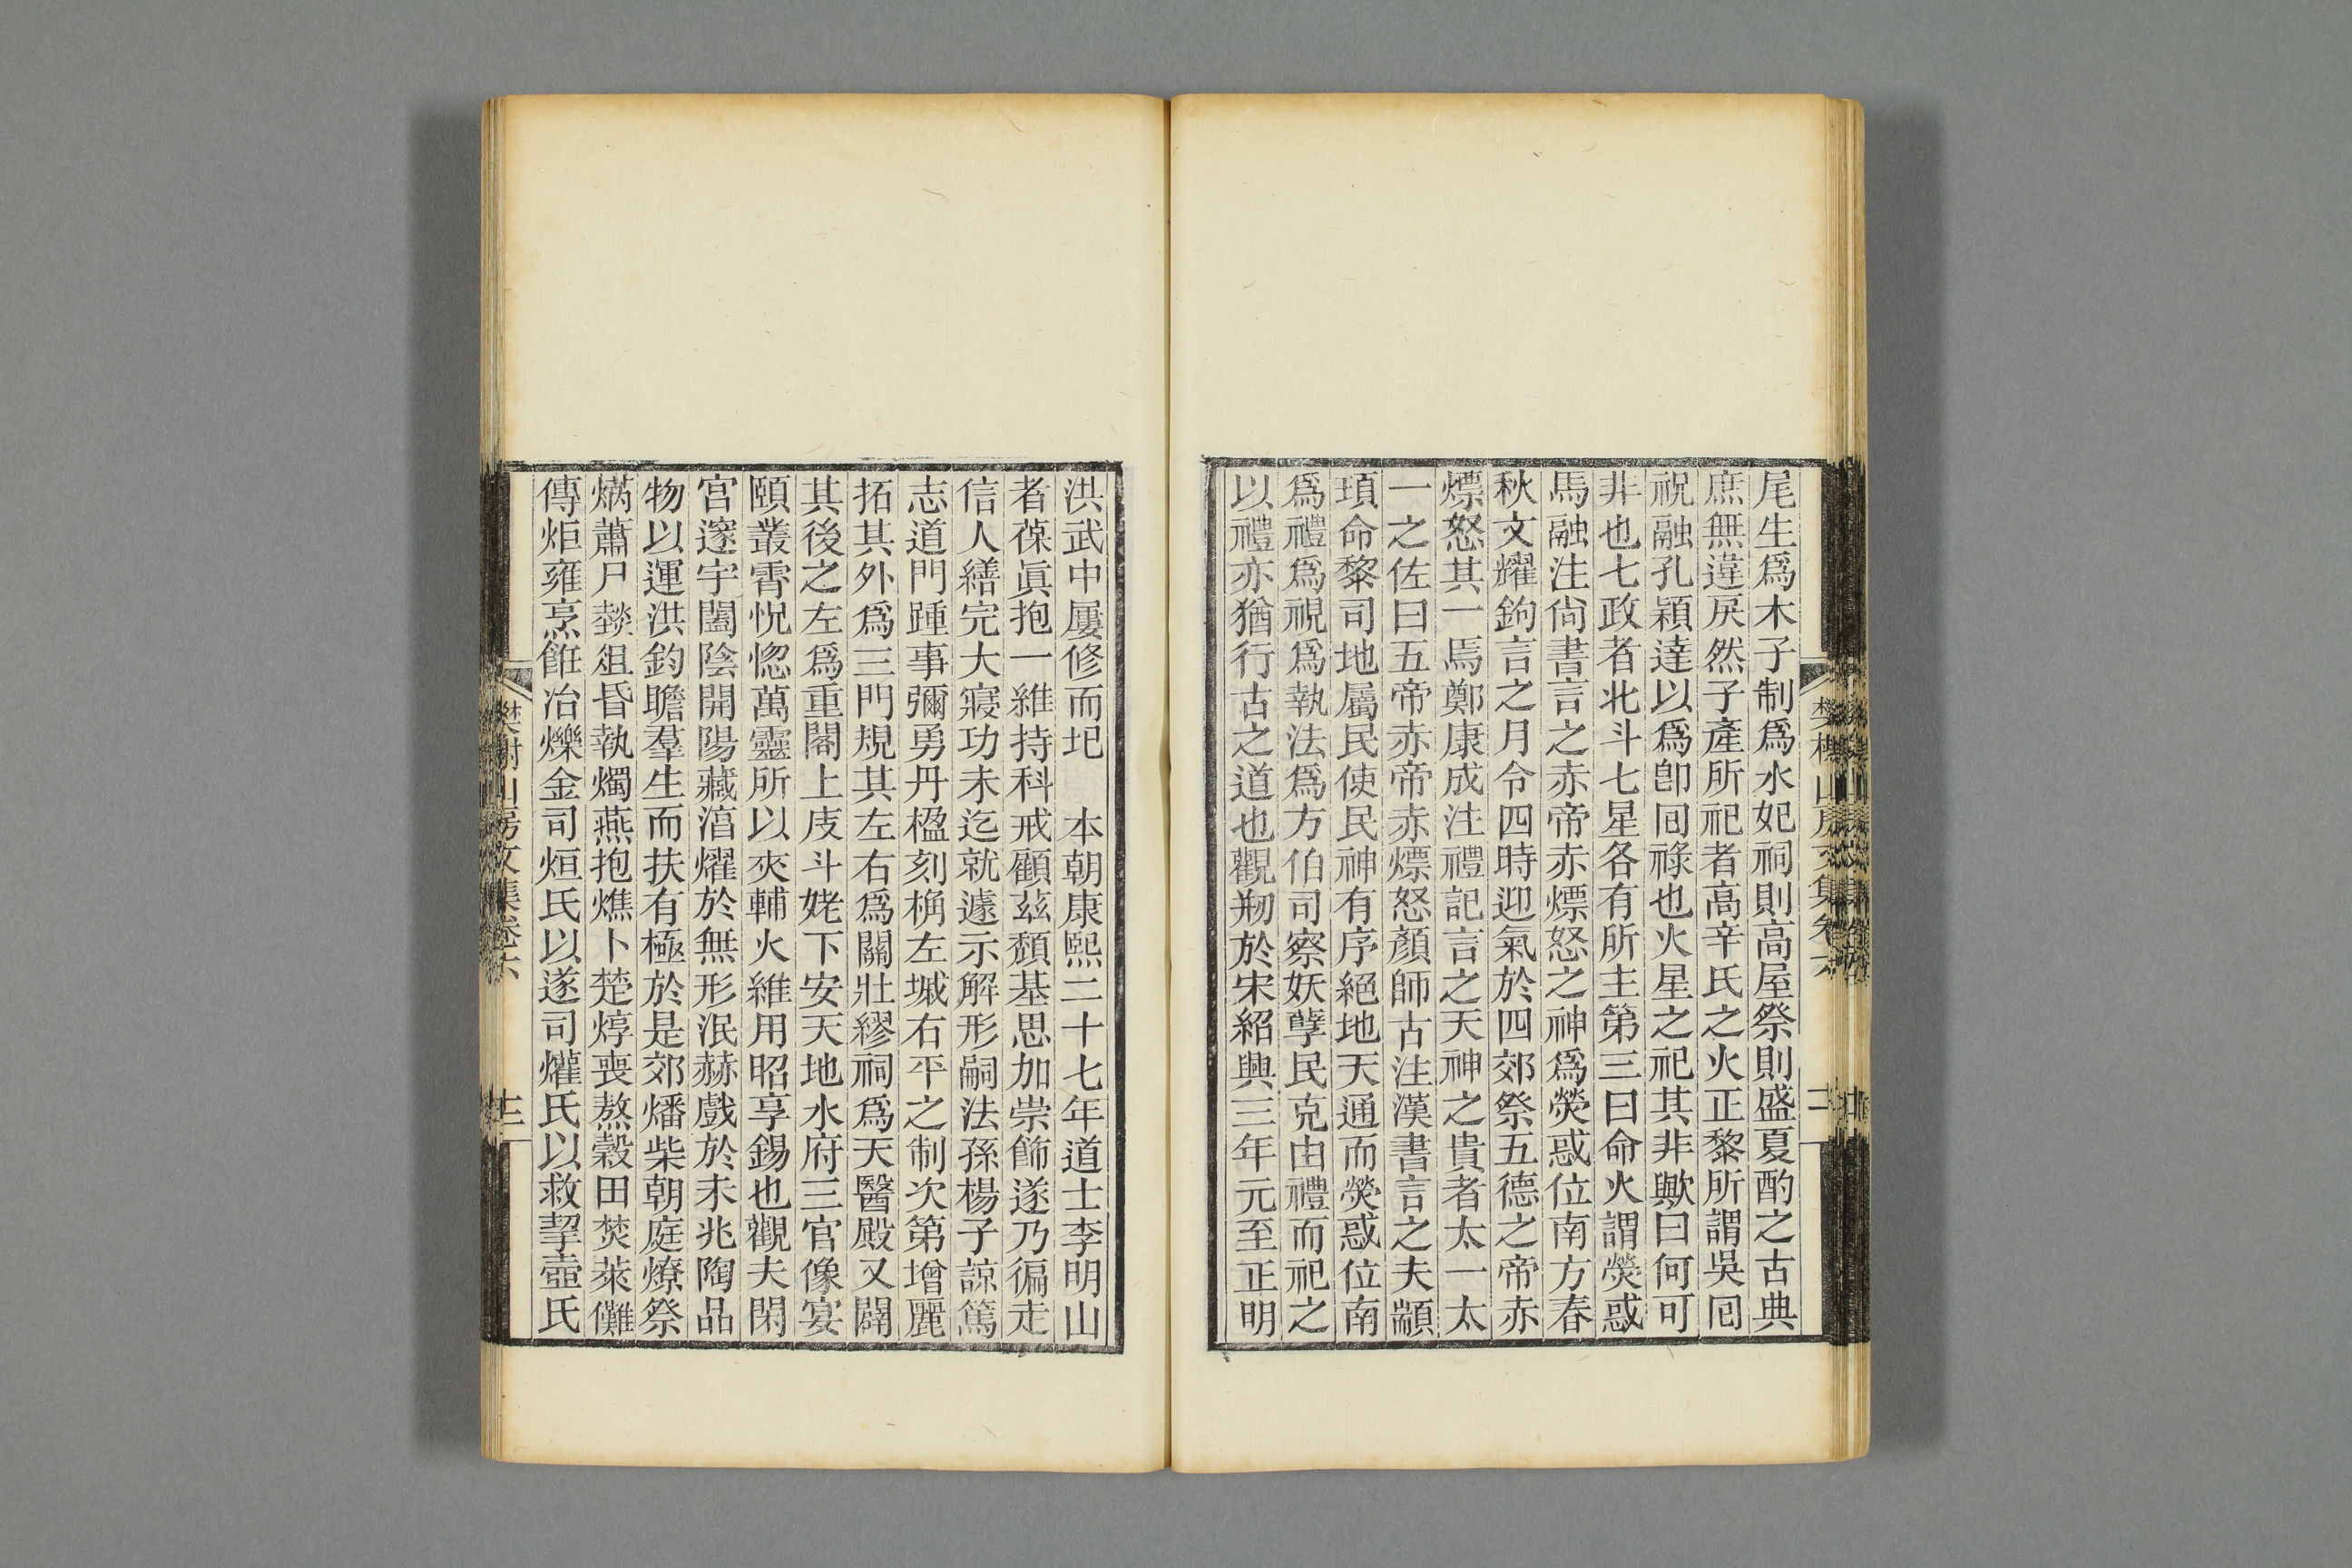 尾生爲木子制爲水妃祠則高屋祭則盛夏酌之古典
庶無違戾然子產所祀者高辛氏之火正黎所謂吳回
祝融孔穎達以爲卽回祿也火星之祀其非歟曰何可
非也七政者北斗七星各有所主第三曰命火謂熒惑
馬融注尙書言之赤帝赤熛怒之神爲熒惑位南方春
秋文耀鉤言之月令四時迎氣於四郊祭五德之帝赤
熛怒其一焉鄭康成注禮記言之天神之貴者太一太
一之佐曰五帝赤帝赤熛怒顏師古注漢書言之夫顓
頊命黎司地屬民使民神有序絕地天通而熒惑位南
爲禮爲視爲執法爲方伯司察妖孽民克由禮而祀之
以禮亦猶行古之道也觀刱於宋紹興三年元至正明
洪武中屢修而圮　本朝康熙二十七年道士李明山
者葆眞抱一維持科戒顧茲頽基思加崇飾遂乃徧走
信人繕完大寢功未迄就遽示解形嗣法孫楊子諒篤
志道門踵事彌勇丹楹刻桷左墄右平之制次第增麗
拓其外爲三門規其左右爲關壯繆祠爲天醫殿又闢
其後之左爲重閣上庋斗姥下安天地水府三官像宴
頤叢霄怳惚萬靈所以夾輔火維用昭享錫也觀夫閑
宮邃宇闔陰開陽藏滀燿於無形泯赫戲於未兆陶品
物以運洪鈞瞻羣生而扶有極於是郊燔柴朝庭燎祭
焫蕭尸爇俎昏執燭燕抱燋卜楚焞喪熬穀田焚萊儺
傳炬雍烹飪冶爍金司烜氏以遂司爟氏以救挈壺氏
樊榭山房文集卷六
樊榭山房文集卷六